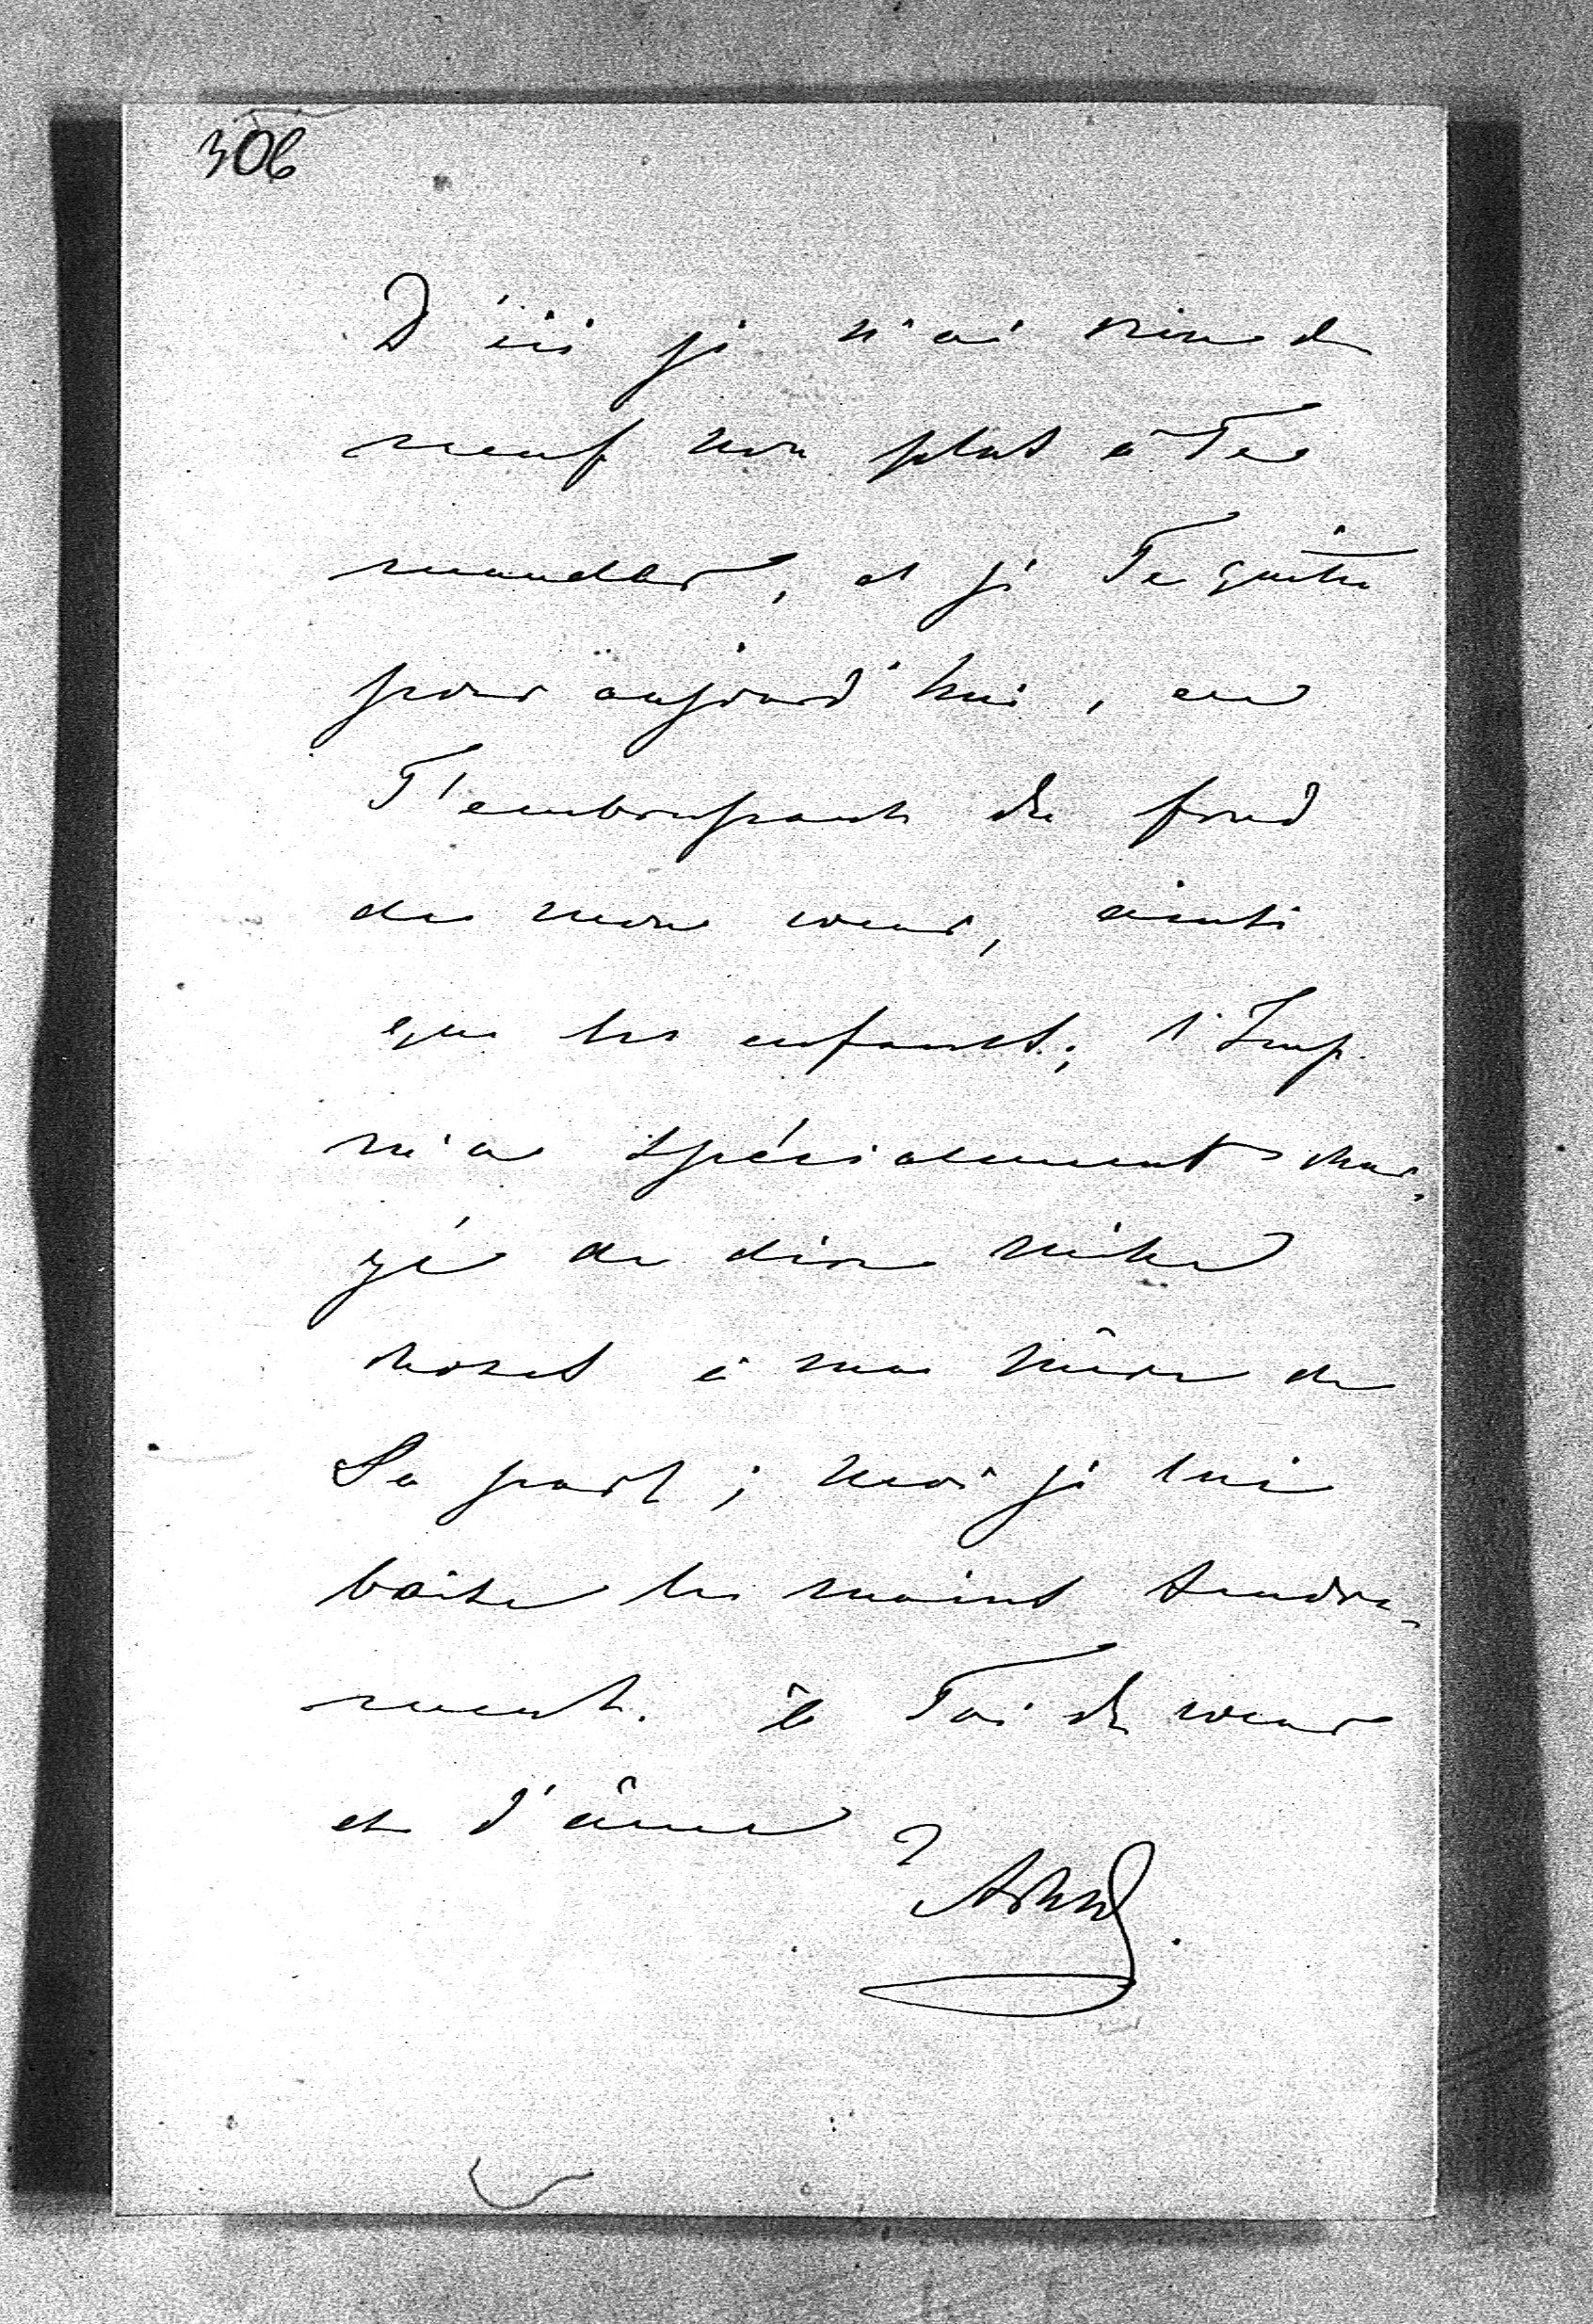 306
D'ici je n'ai rien de
neuf non plus à Te
mander, et je Te quitte
pour aujourd'hui, en
T'embrassant du fond
de mon cœur, ainsi
que les enfants; l'Imp.
m'a spécialement char-
gé de dire mille
choses à ma mère de
Sa part; moi je lui
baise les mains tendre-
ment. à Toi de cœur
et d'âme